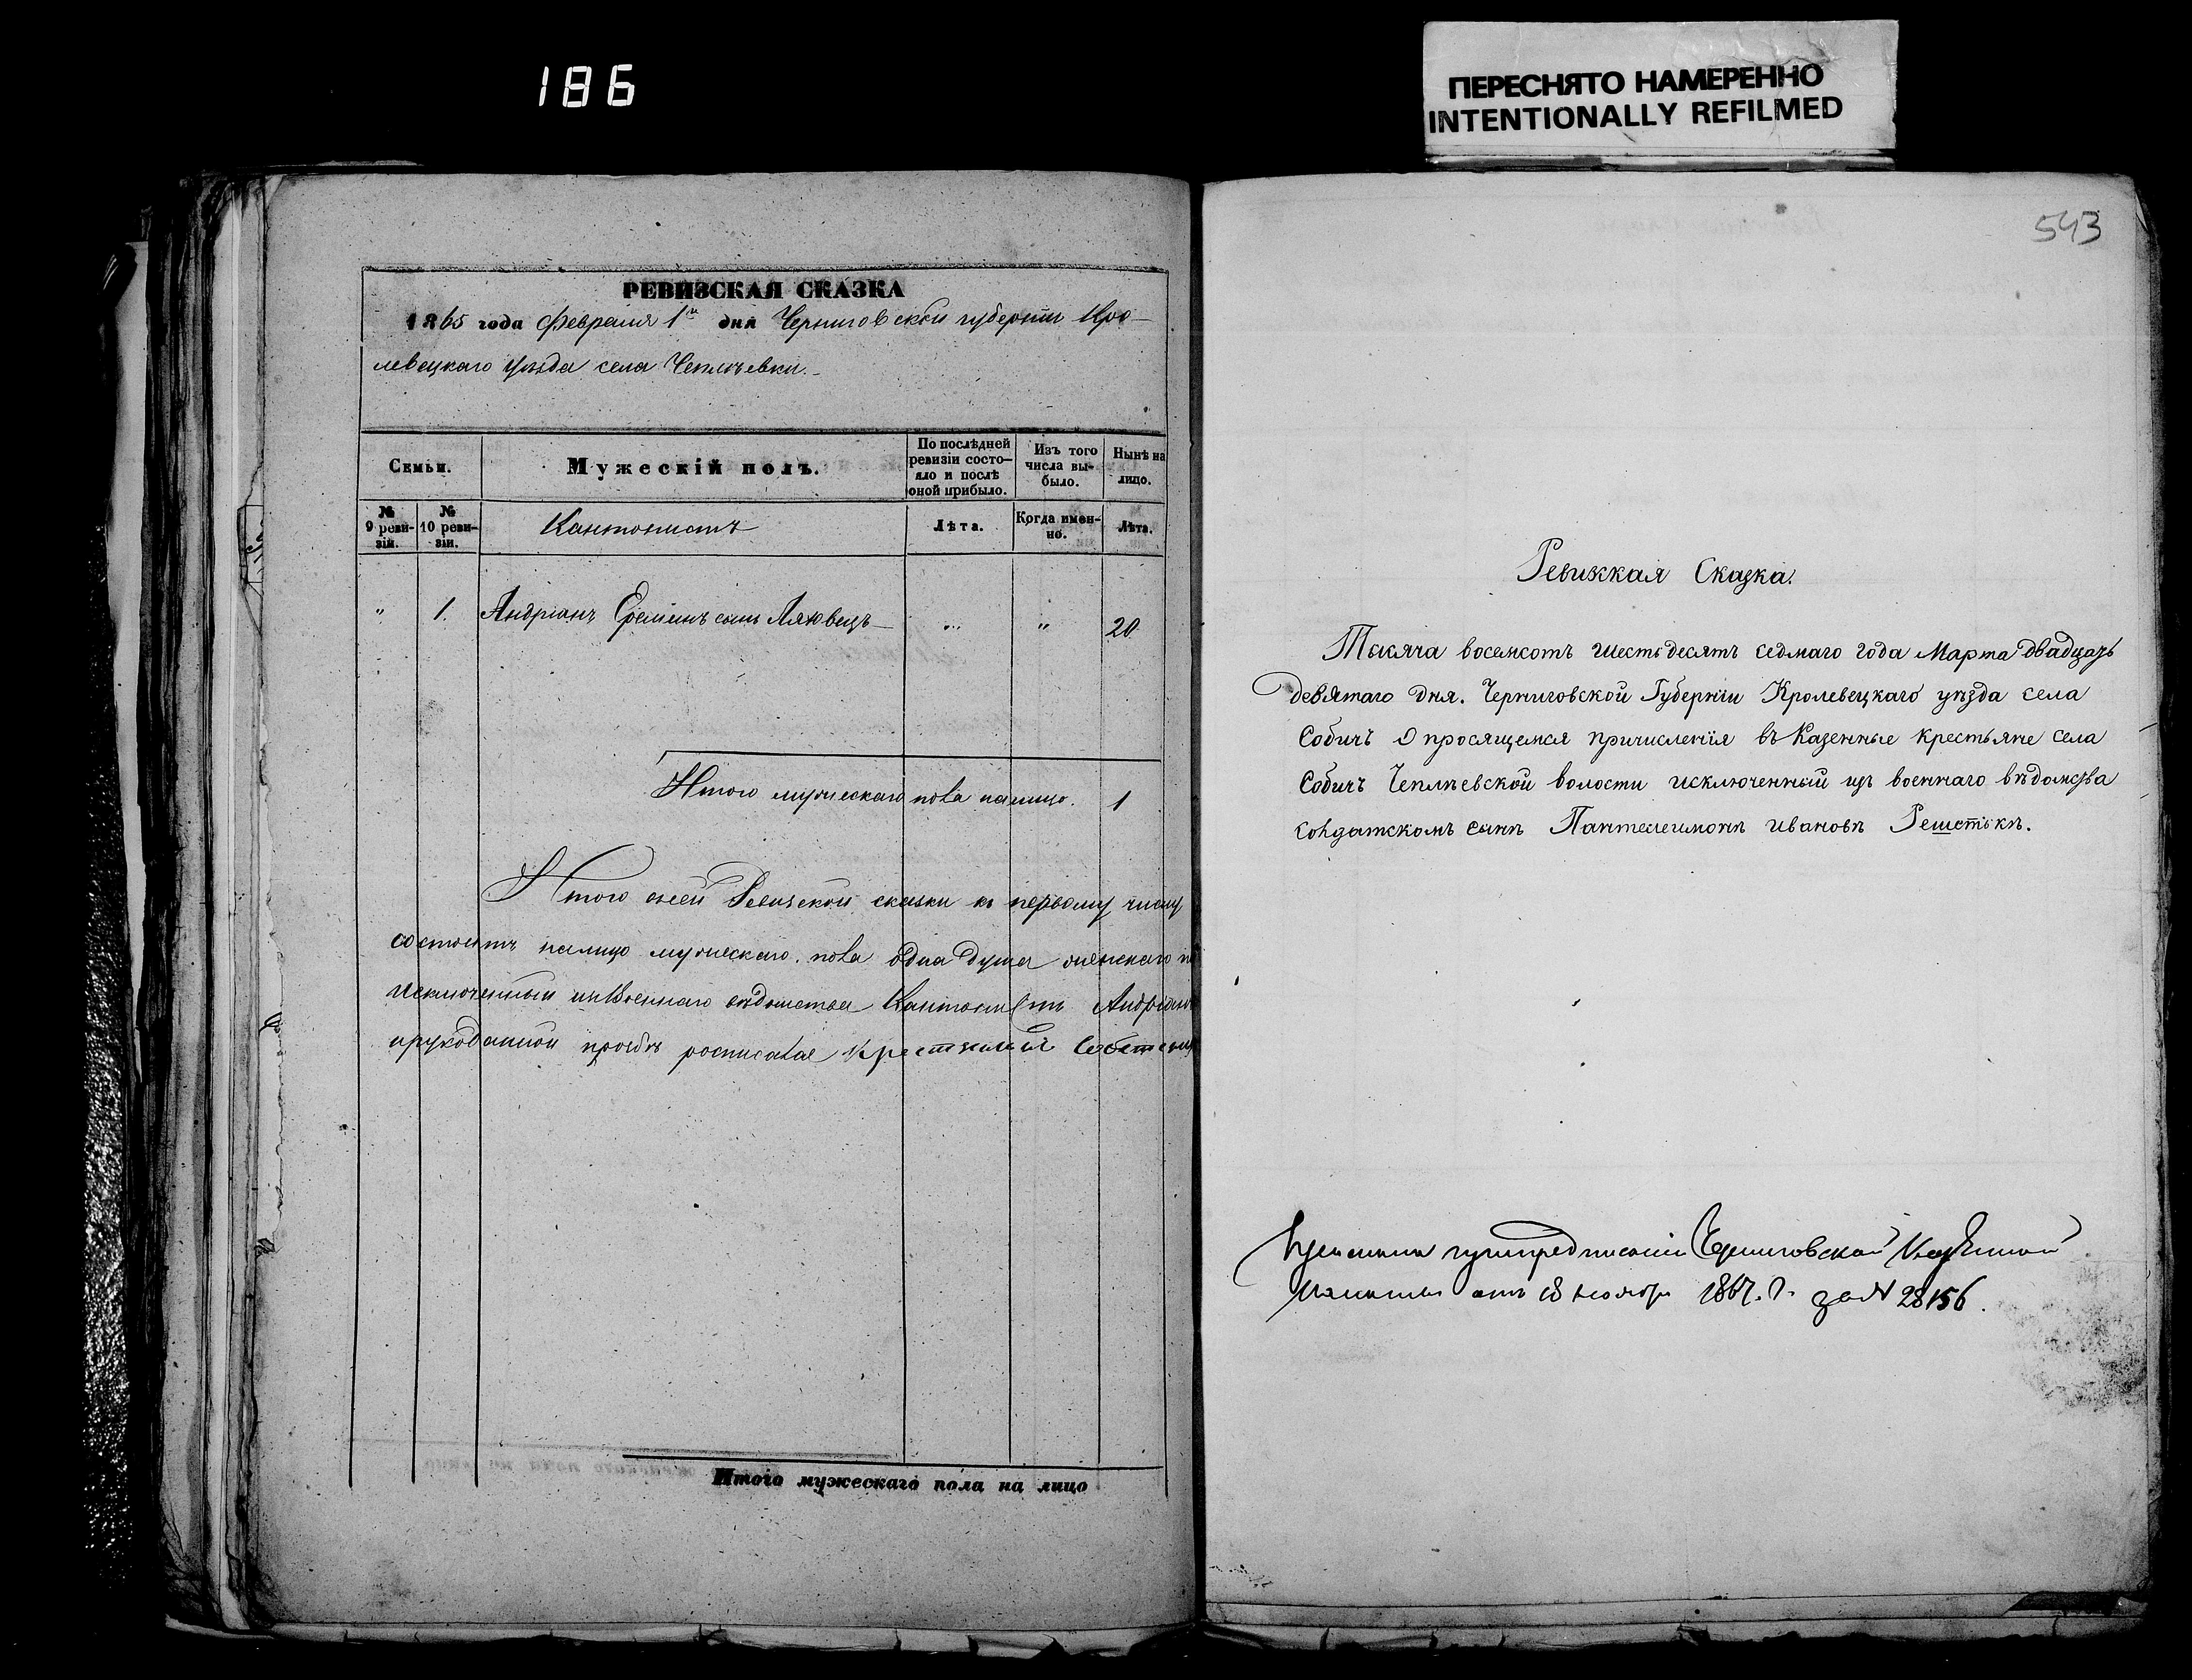 186
ПЕРЕСНЯТО НАМЕРЕННО
INTENTIONALLY REFILMED
РЕВИЗСКАЯ СКАЗКА
1865 года Февраля 1го дня Черниговской губернiи Кро-
левецкаго уѣзда села Чеплѣевки.
Семьи.
Мужескiй полъ.
По послѣдней ревизiи состо-яло и послѣ оной прибыло.
Изъ того числа вы-было.
Нынѣ на лицо.
№ 9 реви-зiи.
№ 10 реви-зiи.
Кантонистъ
Лѣта.
Когда имен-но.
Лѣта.
" 1. Андрiанъ Ереминъ сынъ Ляховецъ " " 20
Итого мужескаго пола налицо. 1
Итого сией Ревизской сказки къ первому числу
состоитъ налицо мужескаго пола одна душа женскаго
исключенный изъ Военнаго вѣдомства Кантонистъ Андрiанъ
рукоданной прозбѣ росписался
Итого мужескаго пола на лицо
543
Ревижкая Сказка.
Тысяча восемсотъ шестьдесятъ седмаго года Марта двадцать
девятаго дня. Черниговской Губернiи Кролевецкаго уѣзда села
Собичъ О просящемся причисленiя въ Казенные крестьяне села
Собичъ Чеплѣевской волости исключенный изъ военнаго вѣдомства
солдатскомъ сынѣ Пантелеимонѣ Ивановѣ Решеткѣ.
предписанiи Черниговской Казенной
Палаты отъ 18 ноября 1867. г. за № 28156.